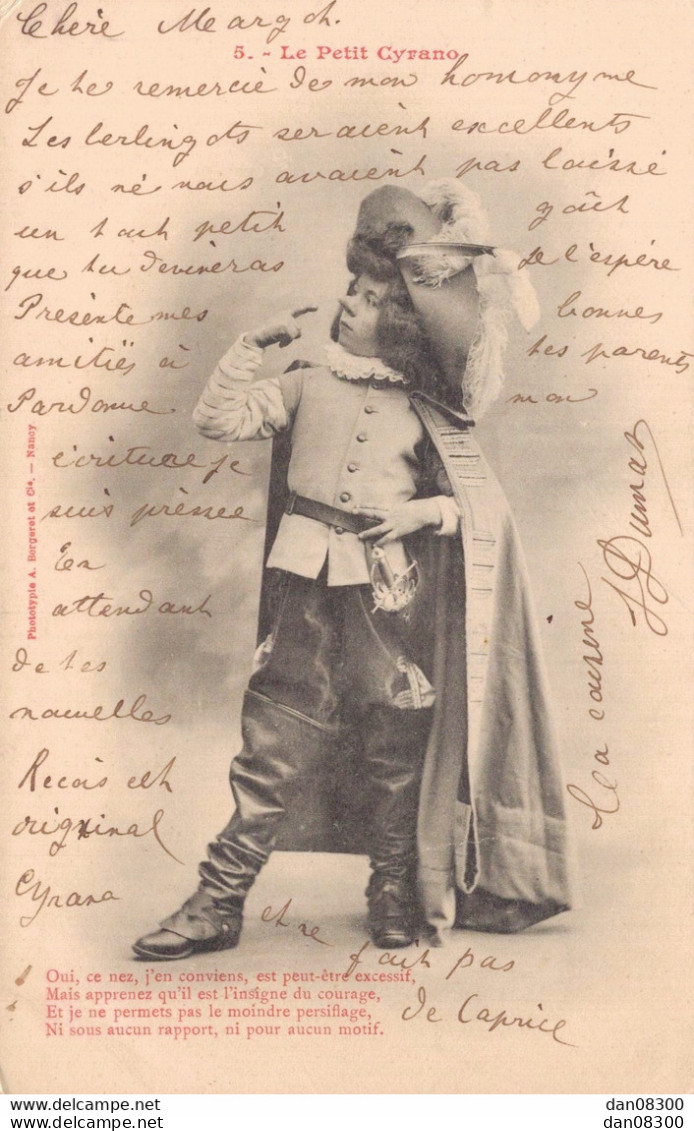 Chère Margot.
5. - Le Petit Cyrano
Je te remercie de mon homonyme
Les berlingots seraient excellents
s'ils ne nous avaient pas laissé
un tout petit goût
que tu devineras Je l'espére
Présente mes bonnes
amitiés à tes parents
Pardonne mon
écriture je
suis pressée
En
attendant
de tes
nouvelles
Recois cet
original
Cyrano
et ne
fait pas
de Caprice
Ta cousine
J Dumas
Phototypie A. Bergeret et Cie. — Nancy
Oui, ce nez, j'en conviens, est peut-être excessif,
Mais apprenez qu'il est l'insigne du courage,
Et je ne permets pas le moindre persiflage,
Ni sous aucun rapport, ni pour aucun motif.
delcampe.net
dan08300
delcampe.net
dan08300